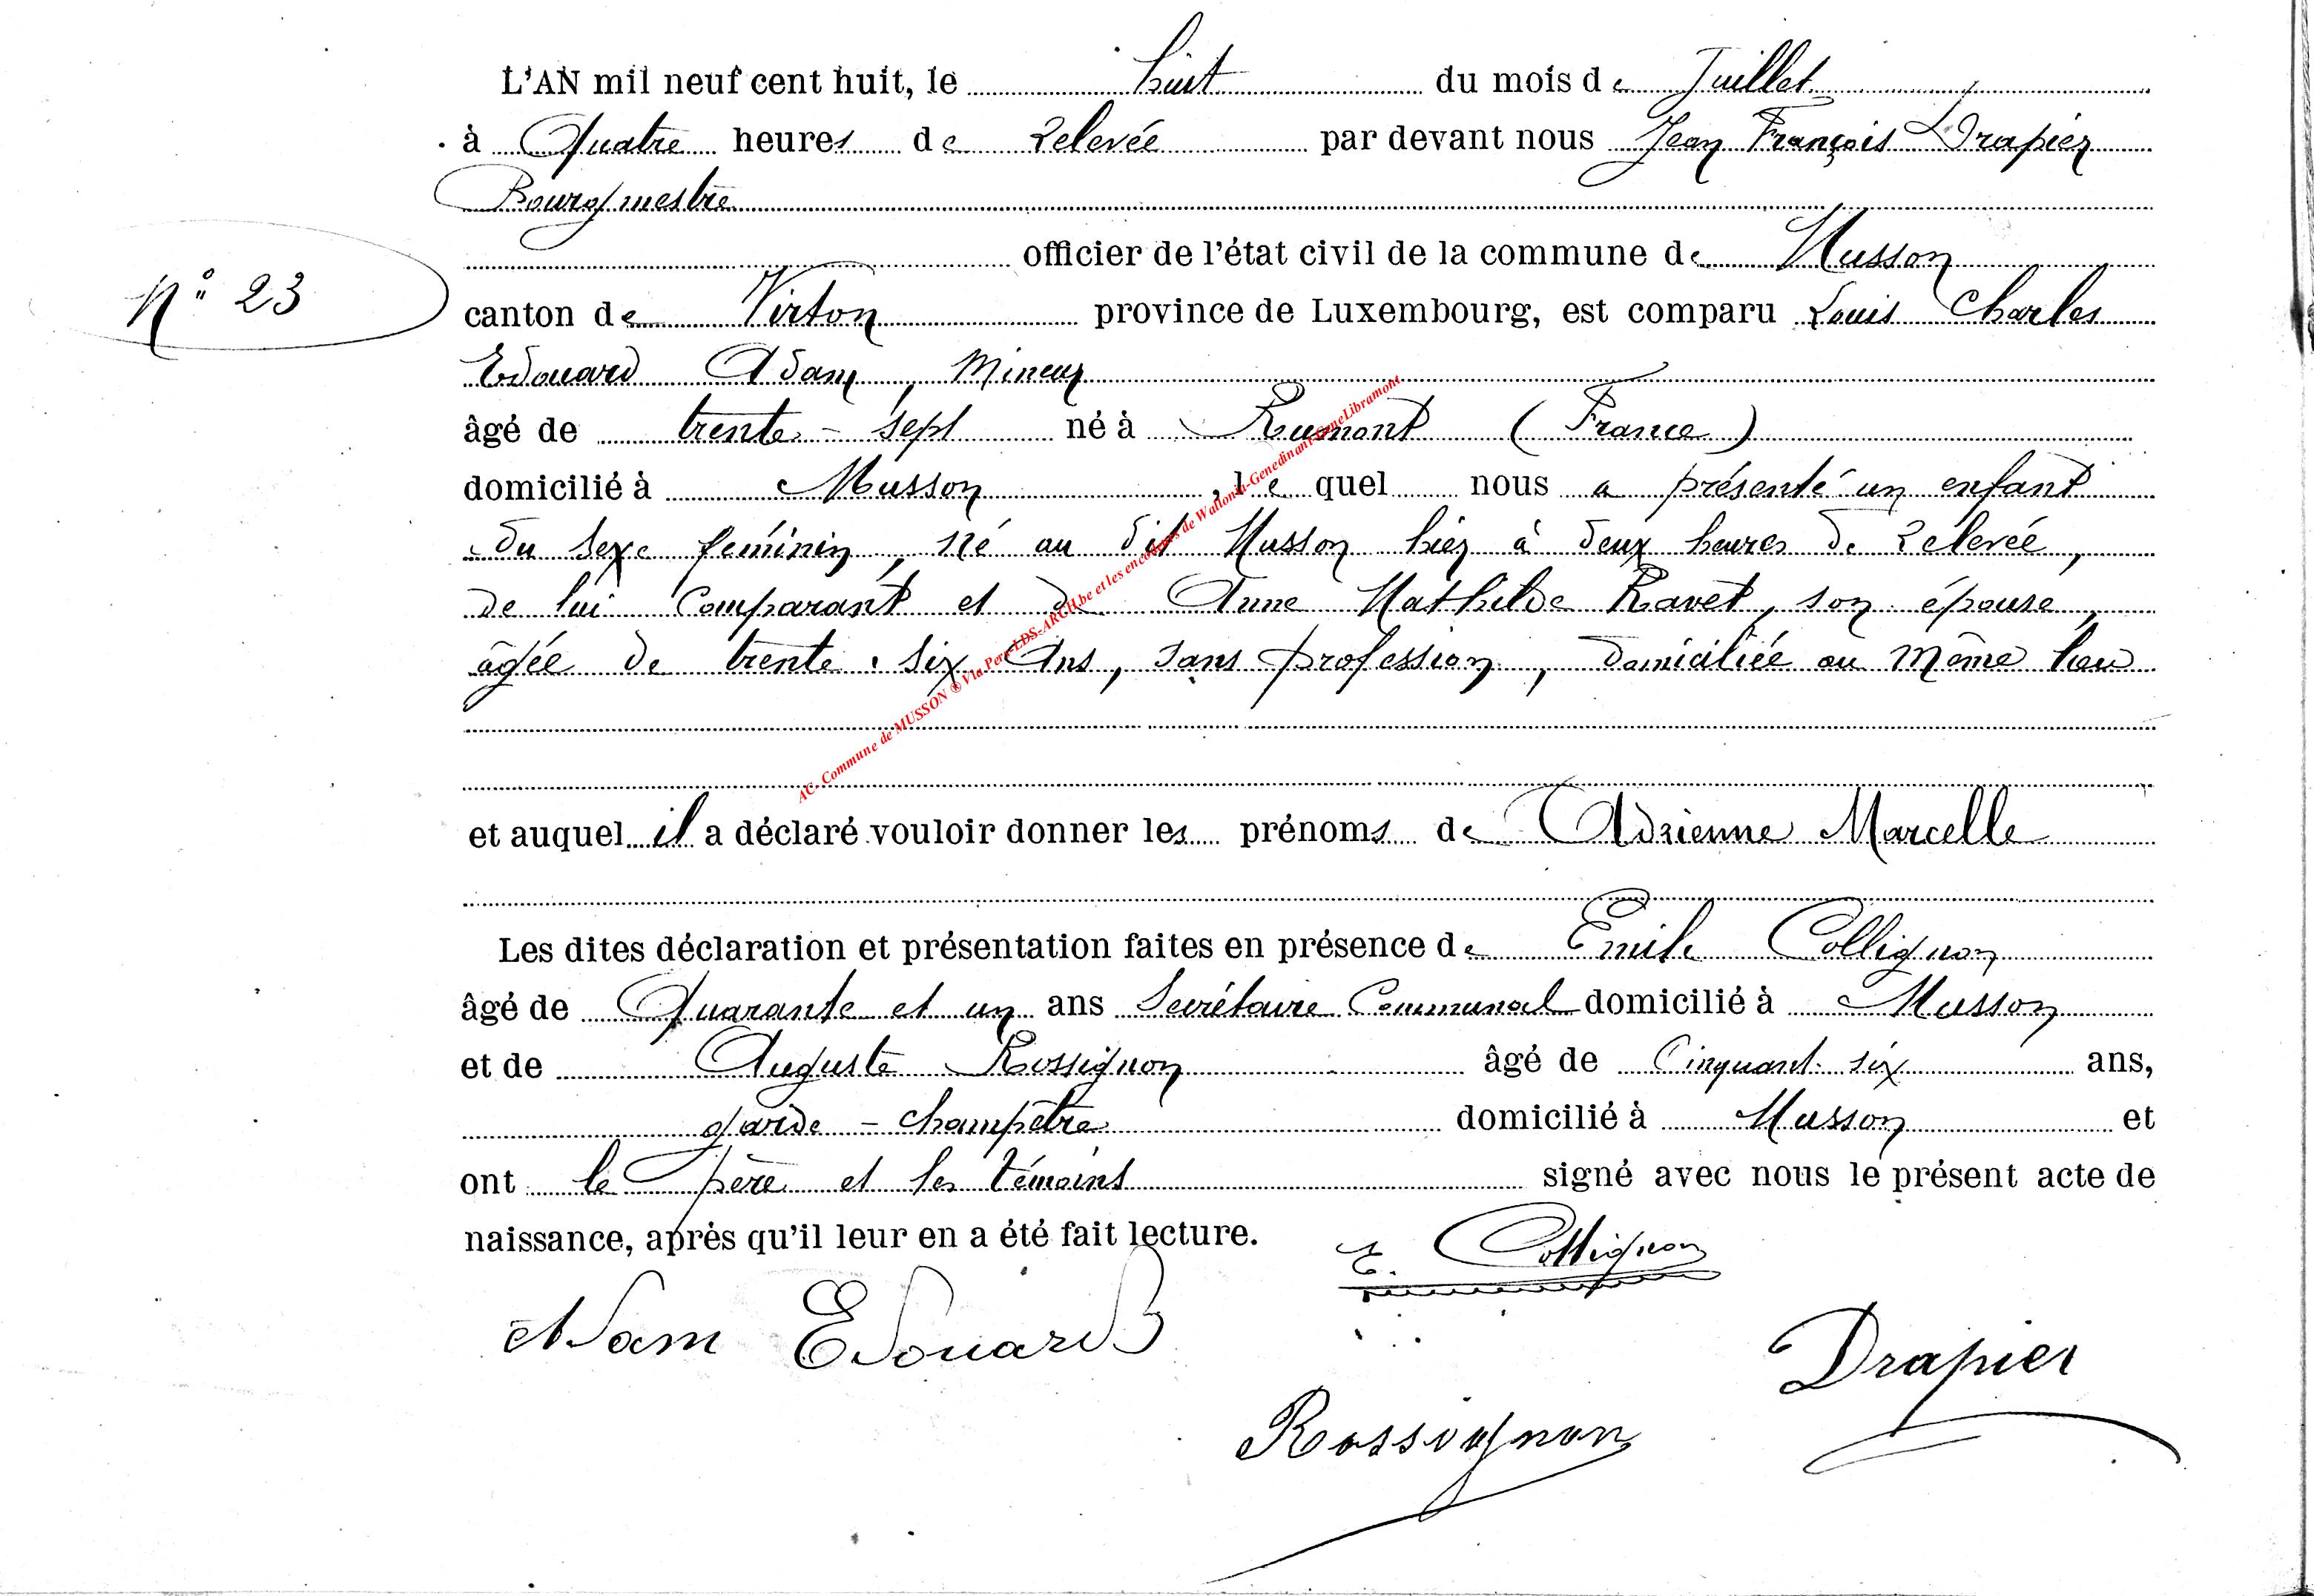 L'AN mil neuf cent huit, le huit du mois de Juillet
à Quatre heures de Relevée par devant nous Jean François Drapier
Bourgmestre
officier de l'état civil de la commune de Musson
N° 23
canton de Virton province de Luxembourg, est comparu Louis Charles
Edouard Adam, Mineur
âgé de trente-sept né à Rumont (France)
domicilié à Musson, le quel nous a présenté un enfant
du sexe feminin, né au dit Musson hier à deux heures de Relevée,
de lui Comparant et de Anne Mathilde Ravet, son épouse,
âgée de trente-six Ans, sans profession, domiciliée au même lieu
AC. Commune de MUSSON ® Via Pers-LDS-ARCH.be et les encodeurs de Wallonia-Genedinant-GeneLibramont
et auquel il a déclaré vouloir donner les prénoms de Adrienne Marcelle
Les dites déclaration et présentation faites en présence de Emile Collignon
âgé de Quarante et un ans Secrétaire Communal domicilié à Musson
et de Auguste Rossignon âgé de Cinquant-six ans,
garde-champêtre domicilié à Musson et
ont le père et les témoins signé avec nous le présent acte de
naissance, après qu'il leur en a été fait lecture.
E. Collignon
Adam Edouard
Drapier
Rossignon